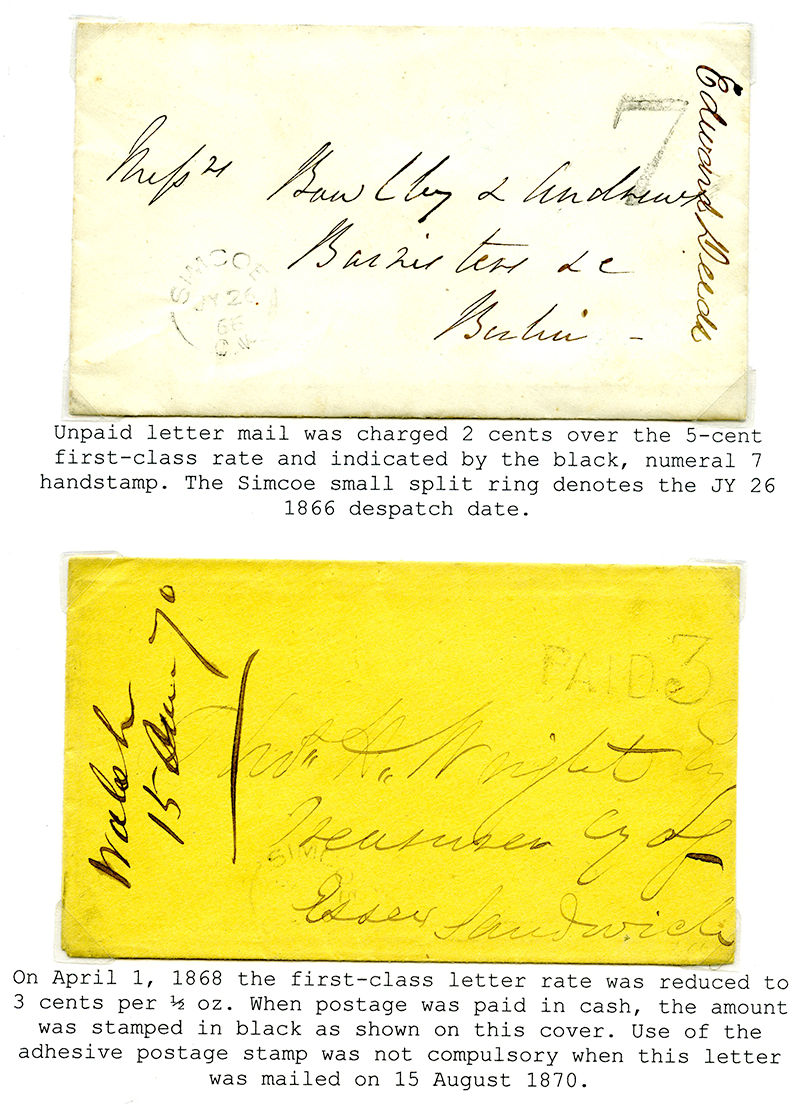 Messrs Bowlby & Andrews
Barristers &c
Berlin
7
Edward
SIMCOE
JY 26
66
C.W.
Unpaid letter mail was charged 2 cents over the 5-cent
first-class rate and indicated by the black, numeral 7
handstamp. The Simcoe small split ring denotes the JY 26
1866 despatch date.
Walsh
15 Aug. 70
PAID 3
Thos. H. Wright Esq
Treasurer Cy of
Essex Sandwich
SIMC
On April 1, 1868 the first-class letter rate was reduced to
3 cents per ½ oz. When postage was paid in cash, the amount
was stamped in black as shown on this cover. Use of the
adhesive postage stamp was not compulsory when this letter
was mailed on 15 August 1870.